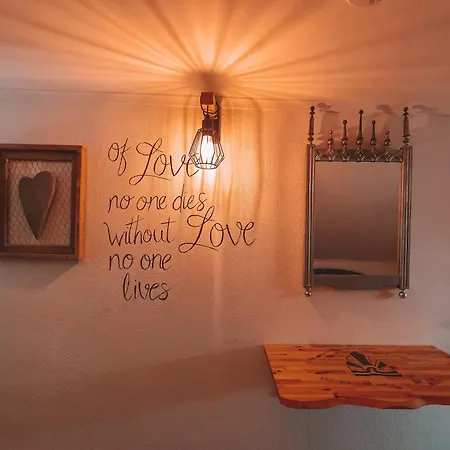 of Love
no one dies
without Love
no one
lives